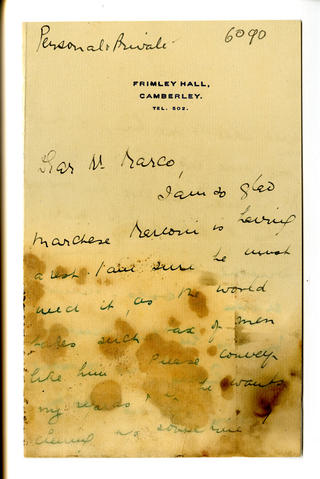 Personal & Private
6090
FRIMLEY HALL,
CAMBERLEY.
TEL. 502.
Dear Mr Marco
I am so glad
Marchese Marconi is having
a rest. I am sure he must
need it, as the world
takes such of men
like him. Please convey
my regards & he wants